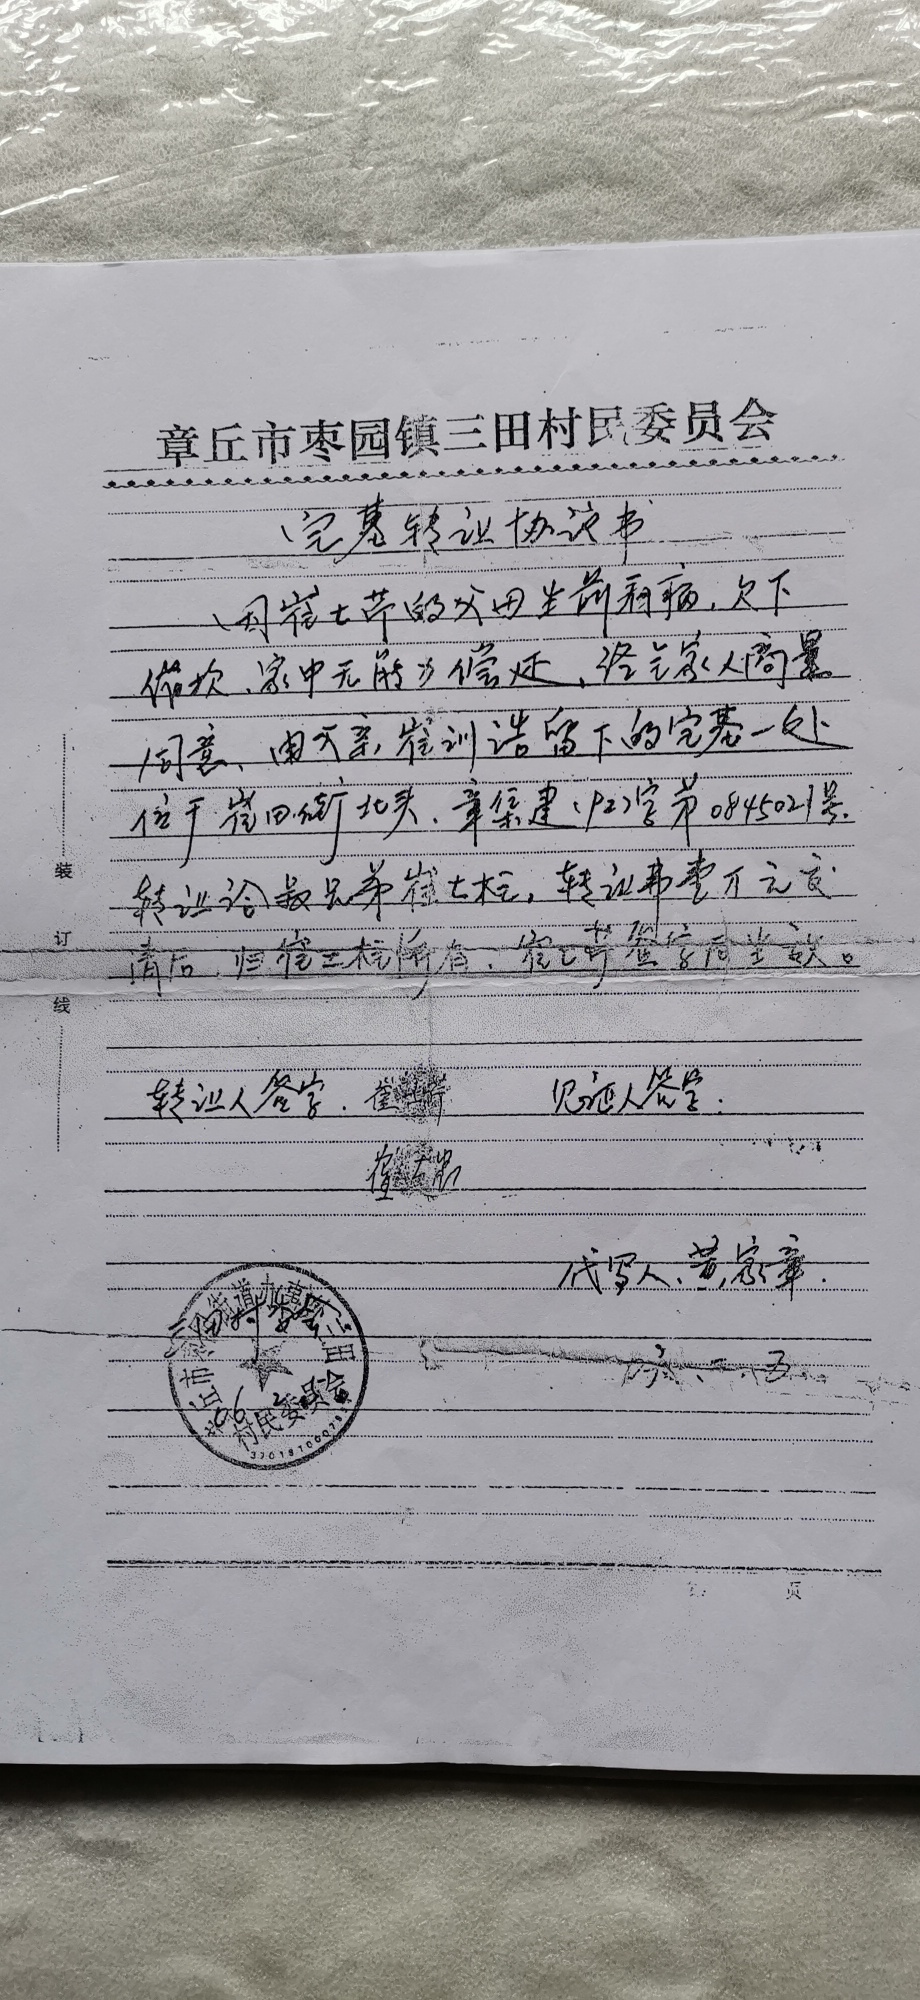 章丘市枣园镇三田村民委员会
宅基转让协议书
因崔士芹的父田生前有病、欠下
债坎、家中无能力偿还、经全家人商量
同意、由父亲崔训浩留下的宅基一处
位于崔田街北头、章集建(92)字第0845021号.
转让给叔兄弟崔士柱，转让费壹万元交
清后、归崔士柱所有、崔士芹签字同生效。
装
订
线
转让人签字. 崔士芹 见证人签字:
崔士忠
代写人、黄家章.
06、二、五
街道办事处三田
村民委员会
06
第 页